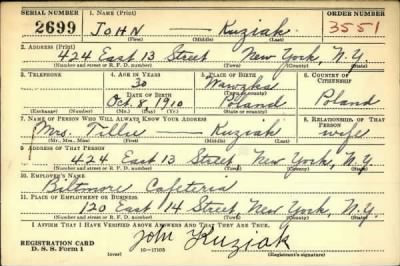 SERIAL NUMBER 1. NAME (Print) ORDER NUMBER
2699 JOHN — Kuziak 3551
(First) (Middle) (Last)
2. ADDRESS (Print)
424 East 13 Street New York, N.Y.
(Number and street or R. F. D. number) (Town) (County) (State)
3. TELEPHONE 4. AGE IN YEARS 5. PLACE OF BIRTH 6. COUNTRY OF CITIZENSHIP
30
DATE OF BIRTH (Town or county)
Oct. 8 1910 Poland Poland
(Exchange) (Number) (Mo.) (Day) (Yr.) (State or country)
7. NAME OF PERSON WHO WILL ALWAYS KNOW YOUR ADDRESS 8. RELATIONSHIP OF THAT PERSON
Mrs. Tillie — Kuziak wife
(Mr., Mrs., Miss) (First) (Middle) (Last)
9. ADDRESS OF THAT PERSON
424 East 13 Street New York, N.Y.
(Number and street or R. F. D. number) (Town) (County) (State)
10. EMPLOYER'S NAME
Biltmore Cafeteria
11. PLACE OF EMPLOYMENT OR BUSINESS
120 East 14 Street New York, N.Y.
(Number and street or R. F. D. number) (Town) (County) (State)
I AFFIRM THAT I HAVE VERIFIED ABOVE ANSWERS AND THAT THEY ARE TRUE.
REGISTRATION CARD John Kuziak
D. S. S. Form 1 (over) 16—17105 (Registrant's signature)